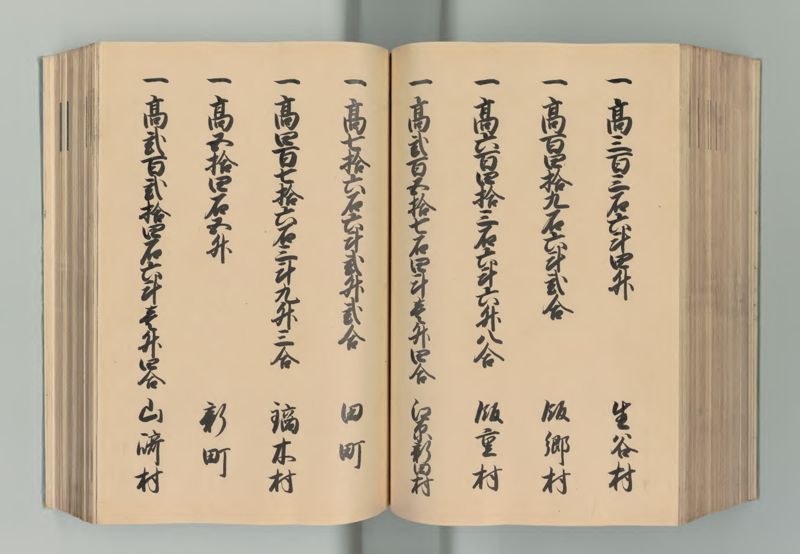 一 高三百三石六斗四升 生谷村
一 高百四拾九石六斗弐合 飯郷村
一 高六百四拾三石六斗六升八合 飯重村
一 高弐百五拾七石四斗壱升四合 江原新田村
一 高七拾六石六斗弐升弐合 田町
一 高四百七拾六石三斗九升三合 鏑木村
一 高五拾四石五升 新町
一 高弐百弐拾四石六斗壱升四合 山崎村